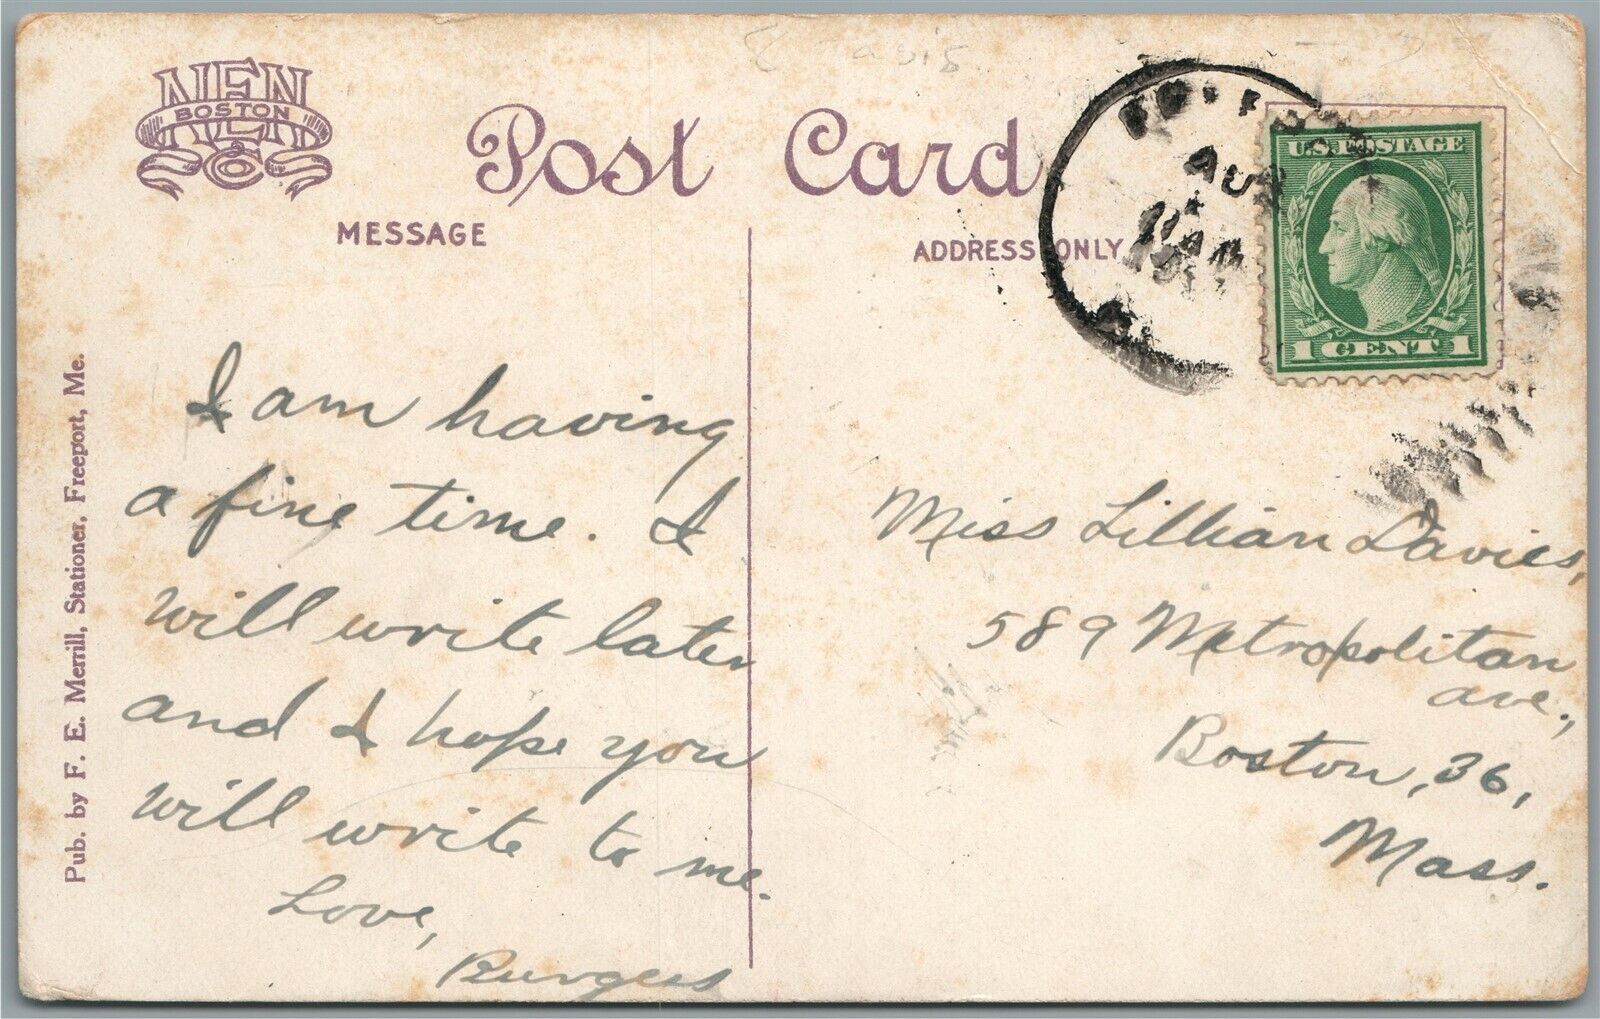 NEN
BOSTON
Co
Post Card
MESSAGE
ADDRESS ONLY
U.S. POSTAGE
1 CENT 1
AUG
Pub. by F. E. Merrill, Stationer, Freeport, Me.
I am having
a fine time. I
will write later
and I hope you
will write to me.
Love,
Burgess
Miss Lillian Davies,
589 Metropolitan
ave.,
Boston, 36,
Mass.